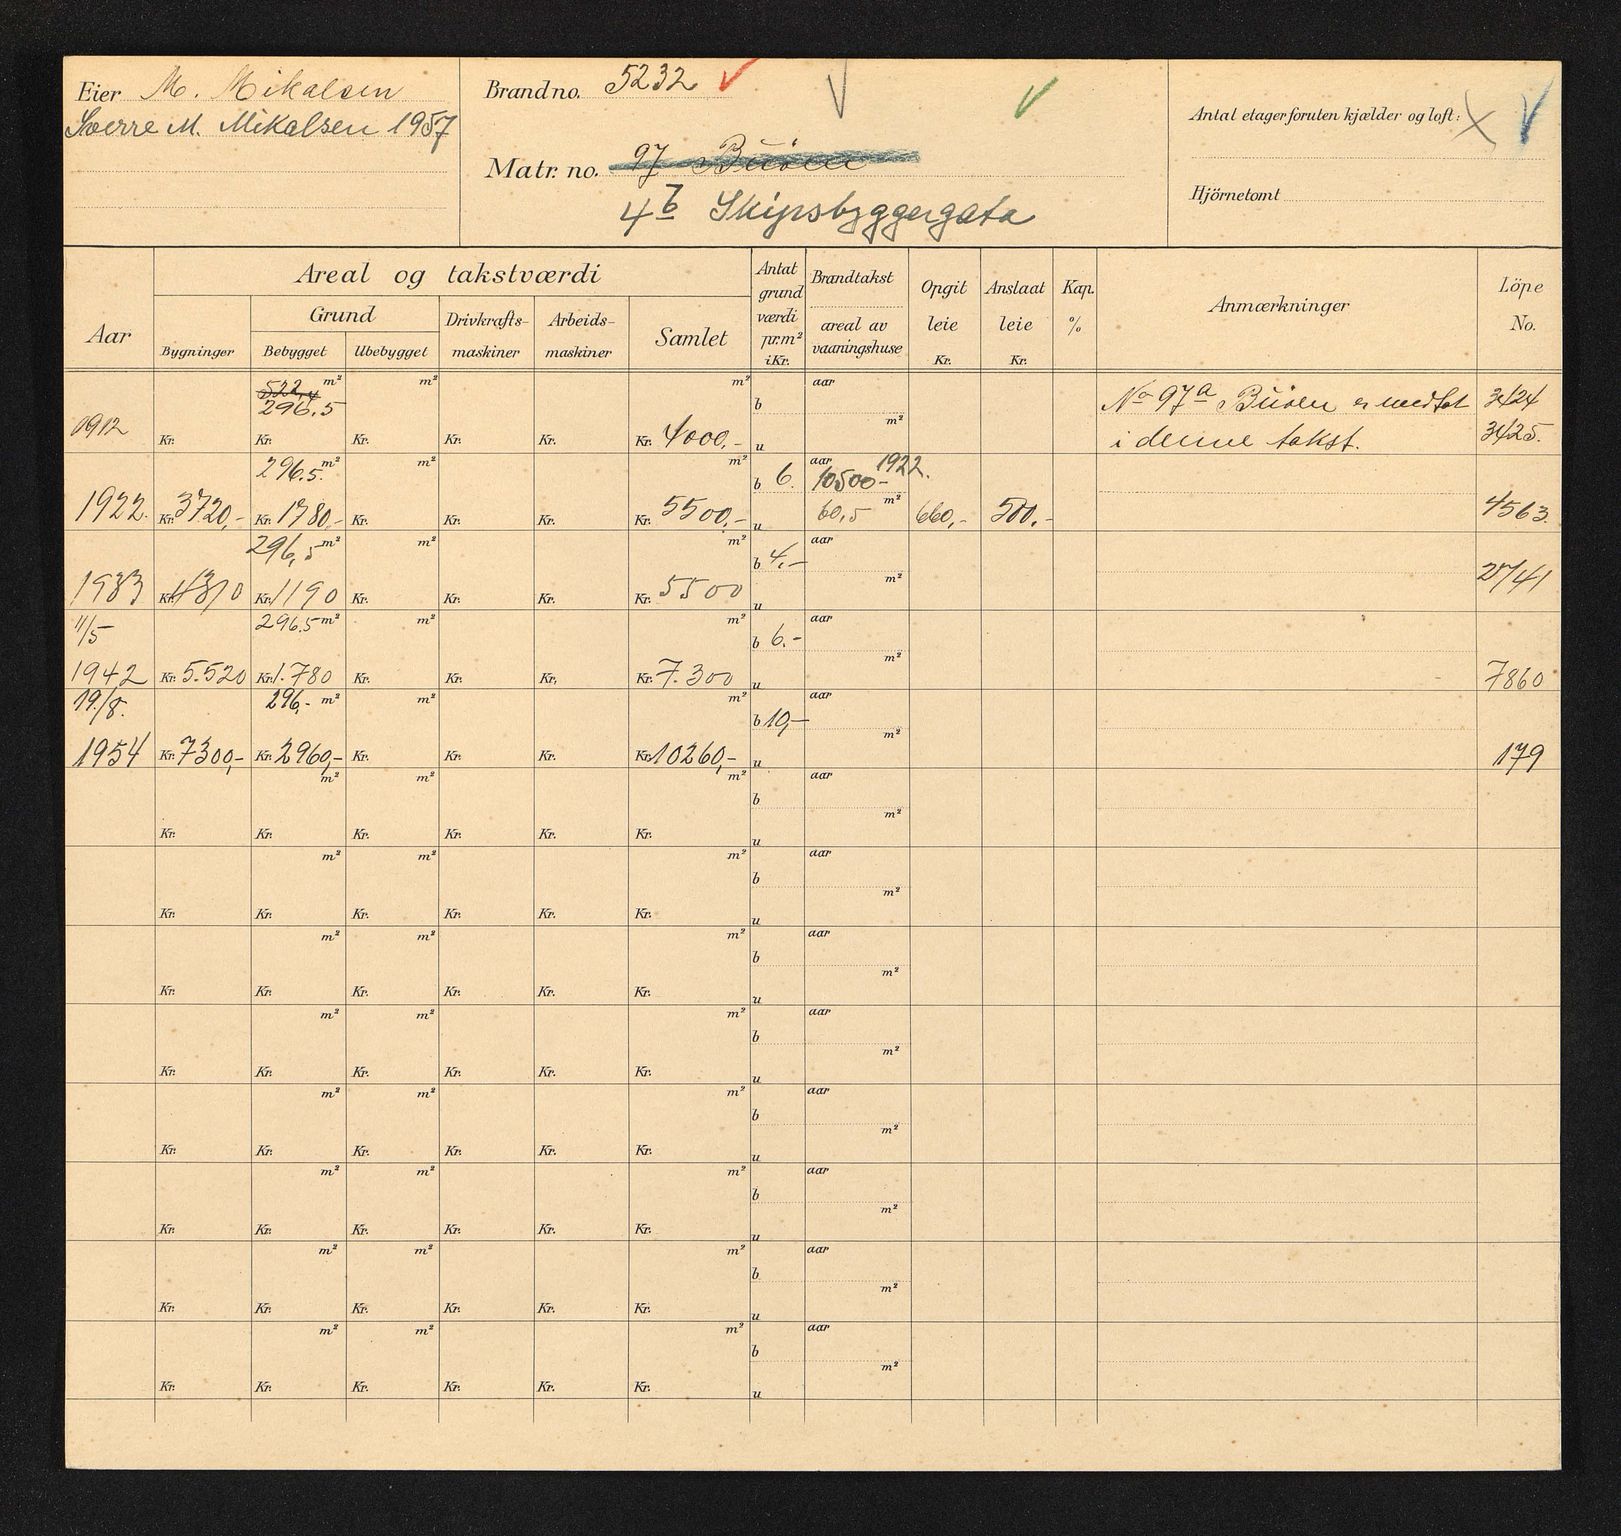 Eier M. Mikalsen
Sverre M. Mikalsen 1957
Brand no. 5232
Matr. no. 97 Buøen
4b Skipsbyggergata
Antal etager foruten kjælder og loft:
Hjörnetomt
Aar
Areal og takstværdi
Bygninger
Grund
Bebygget Ubebygget
Drivkrafts-
maskiner
Arbeids-
maskiner
Samlet
Antat
grund
værdi
pr. m²
i Kr.
Brandtakst
areal av
vaaningshuse
Opgit
leie
Kr.
Anslaat
leie
Kr.
Kap.
%
Anmærkninger
Löpe
No.
522,4 m² m² m² aar
296.5 b No 97a Buøen er medtat 3424
1912 Kr. Kr. Kr. Kr. Kr. Kr. 4000,- u m² i denne takst. 3425.
296.5. m² m² m² b 6. aar 1922.
10500-
1922. Kr. 3720,- Kr. 1780,- Kr. Kr. Kr. Kr. 5500,- u 60,5 m² 660,- 500.- 4563.
296,5 m² m² m² b 4,- aar
1933 Kr. 4310 Kr. 1190 Kr. Kr. Kr. Kr. 5500 u m² 27/41
11/5 296.5 m² m² m² b 6.- aar
1942 Kr. 5.520 Kr. 1.780 Kr. Kr. Kr. Kr. 7.300 u m² 7860
19./8. 296,- m² m² m² b 10,- aar
1954 Kr. 7300,- Kr. 2960,- Kr. Kr. Kr. Kr. 10260,- u m² 179
m² m² m² b aar
Kr. Kr. Kr. Kr. Kr. Kr. u m²
m² m² m² b aar
Kr. Kr. Kr. Kr. Kr. Kr. u m²
m² m² m² b aar
Kr. Kr. Kr. Kr. Kr. Kr. u m²
m² m² m² b aar
Kr. Kr. Kr. Kr. Kr. Kr. u m²
m² m² m² b aar
Kr. Kr. Kr. Kr. Kr. Kr. u m²
m² m² m² b aar
Kr. Kr. Kr. Kr. Kr. Kr. u m²
m² m² m² b aar
Kr. Kr. Kr. Kr. Kr. Kr. u m²
m² m² m² b aar
Kr. Kr. Kr. Kr. Kr. Kr. u m²